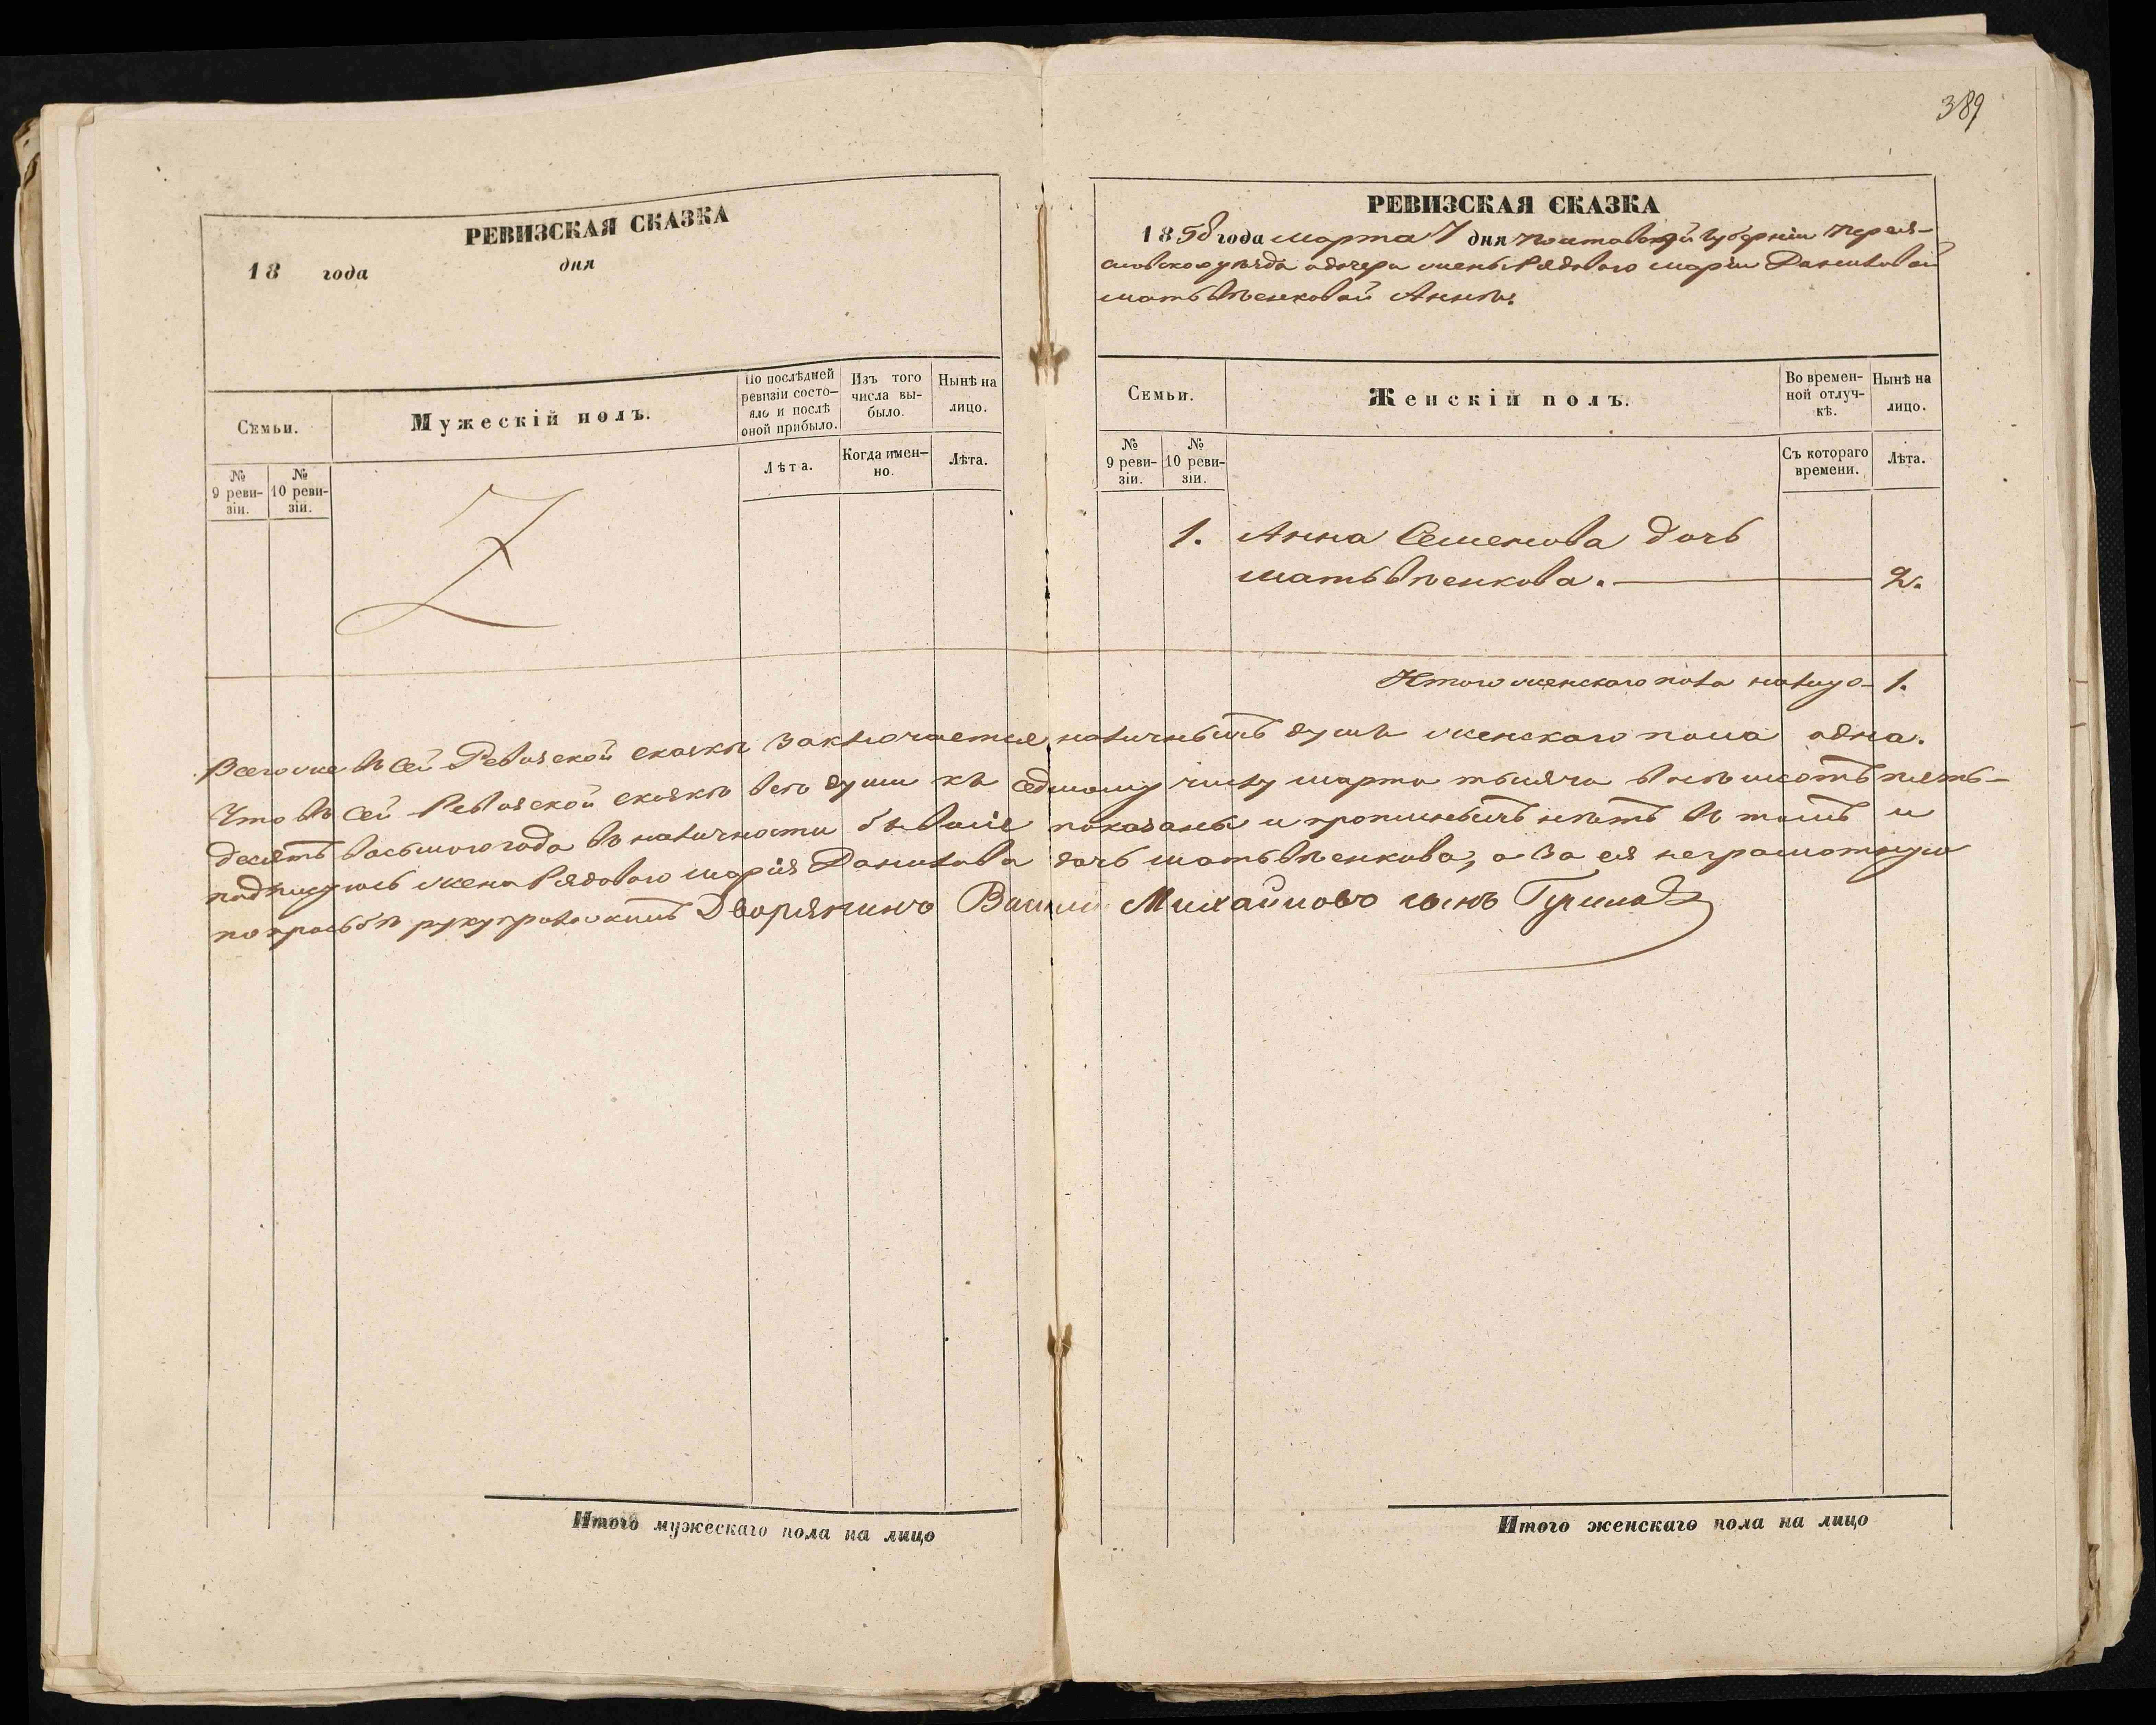 389
РЕВИЗСКАЯ СКАЗКА
18 года дня
Семьи.
Мужескій полъ.
По послѣдней ревизіи состо-
яло и послѣ оной прибыло.
Изъ того числа вы-
было.
Нынѣ на лицо.
№ 9 реви-
зіи.
№ 10 реви-
зіи.
Лѣта.
Когда имен-
но.
Лѣта.
РЕВИЗСКАЯ СКАЗКА
1858 года марта 7 дня Полтавской губерніи Перея-
словского уѣзда о дочери жены Рядового Маріи Даниловой
Матьвѣенковой Аннѣ.
Семьи.
Женскій полъ.
Во времен-
ной отлуч-
кѣ.
Нынѣ на лицо.
№ 9 реви-
зіи.
№ 10 реви-
зіи.
Съ котораго времени.
Лѣта.
1. Анна Семенова дочь
Матьвѣенкова. 2.
Итого женскаго пола налицо 1.
Всего же въ сей Ревизской сказкѣ заключается наличныхъ душъ женскаго пола одна.
Что въ сей Ревизской сказкѣ всѣ души къ седмому числу марта тысяча восѣмсотъ пять-
десятъ восьмого года въ наличности бывшіе показаны и прописныхъ нѣтъ въ томъ и
подписуюсь жена Рядового Марія Данилова дочь Матьвѣенкова, а за ея неграмотную
по прозьбѣ руку приложилъ Дворянинъ Михайловъ сынъ
Итого мужескаго пола на лицо
Итого женскаго пола на лицо